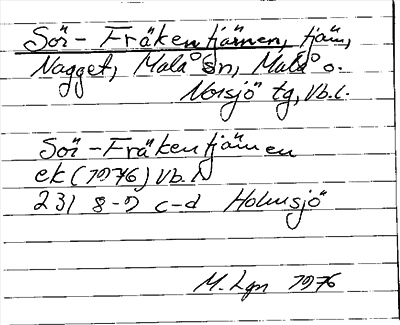 Sör-Fräkentjärnen, tjärn,
Nagget, Malå sn, Malå o.
Norsjö tg, Vb.l.
Sör-Fräkentjärnen
ek (1976) Vb.l
231 8-9 c-d Holmsjö
M. Lgn 1976